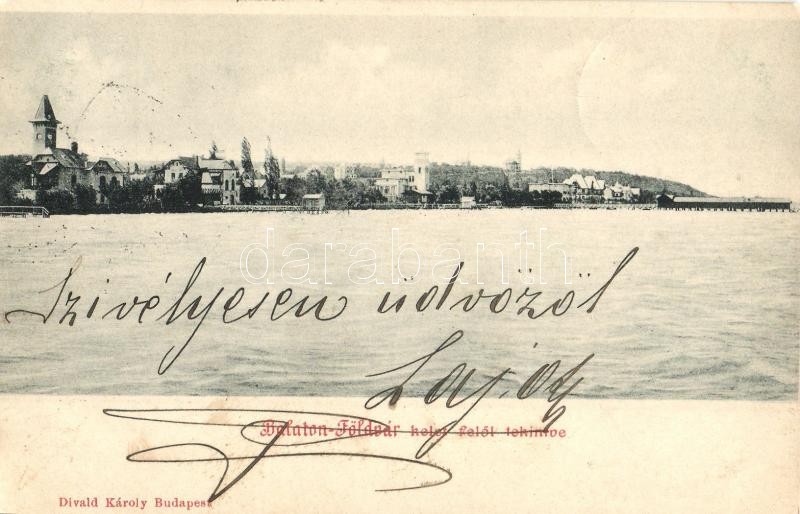 darabanth
Szivélyesen üdvözöl
Lajos
Balaton-Földvár kelet felől tekintve
Divald Károly Budapest